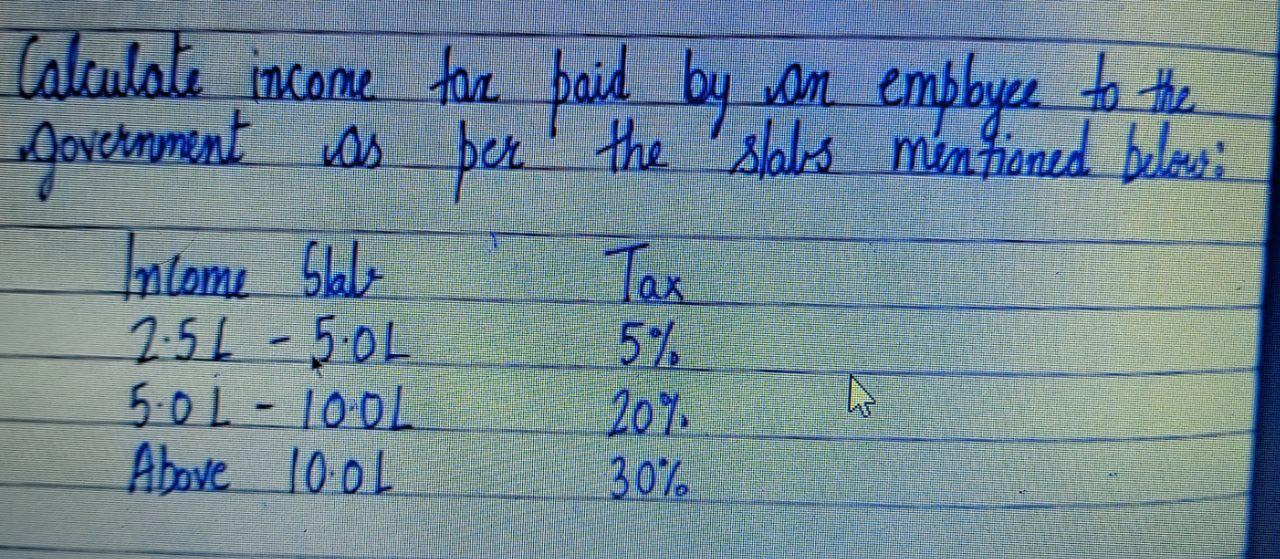 Calculate income tax paid by an employee to the
government as per the slabs mentioned below:
Income Slab Tax
2.5L - 5.0L 5%
5.0L - 10.0L 20%
Above 10.0L 30%